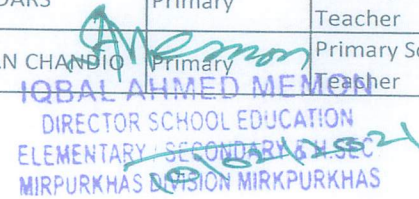 DARS Primary Teacher
AN CHANDIO Primary Primary Sc
Teacher
IQBAL AHMED MEMON
DIRECTOR SCHOOL EDUCATION
ELEMENTARY, SECONDARY & H.SEC
MIRPURKHAS DIVISION MIRKPURKHAS